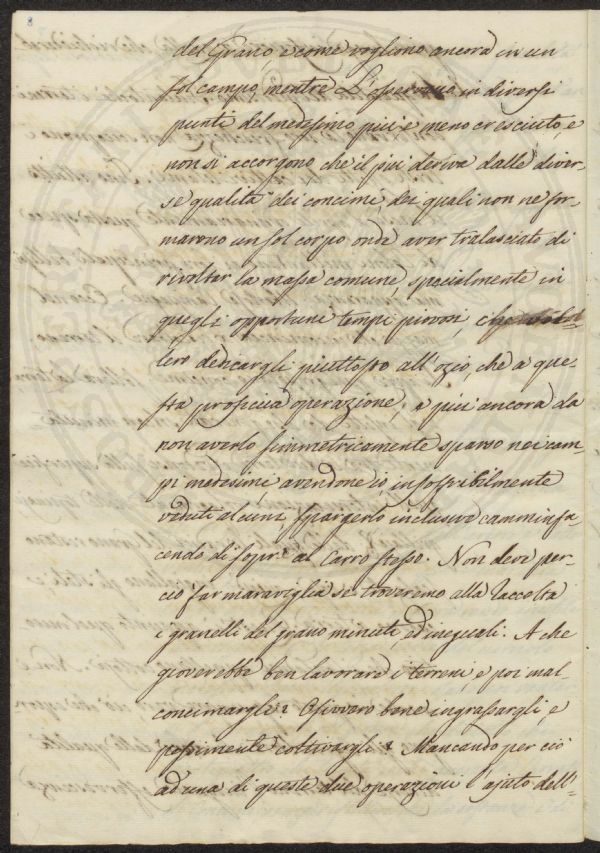 8
del Grano, e come vogliono ancora in un
sol campo, mentre L'osservano in diversi
punti del medesimo più e meno cresciuto, e
non si accorgono che il più deriva dalle diver-
se qualità dei concimi, dei quali non ne for-
marono un sol corpo onde aver tralasciato di
rivoltar la massa comune, specialmente in
quegli opportuni tempi piovosi, che
lero dedicargli piuttosto all'ozio, che a que-
sta proficua operazione, e più ancora da
non averlo simmetricamente sparso nei cam-
pi medesimi avendone io insoffribilmente
veduti alcuni spargerlo inclusive cammin fa-
cendo di sopra al Carro stesso. Non deve per-
ciò far maraviglia se troveremo alla raccolta
i granelli del grano minuti, ed ineguali. A che
gioverebbe ben lavorare i terreni, e poi mal-
concimargli? Ossivvero bene ingrassargli, e
pessimente coltivargli? Mancando per ciò
ad una di queste due operazioni l'ajuto dell'-